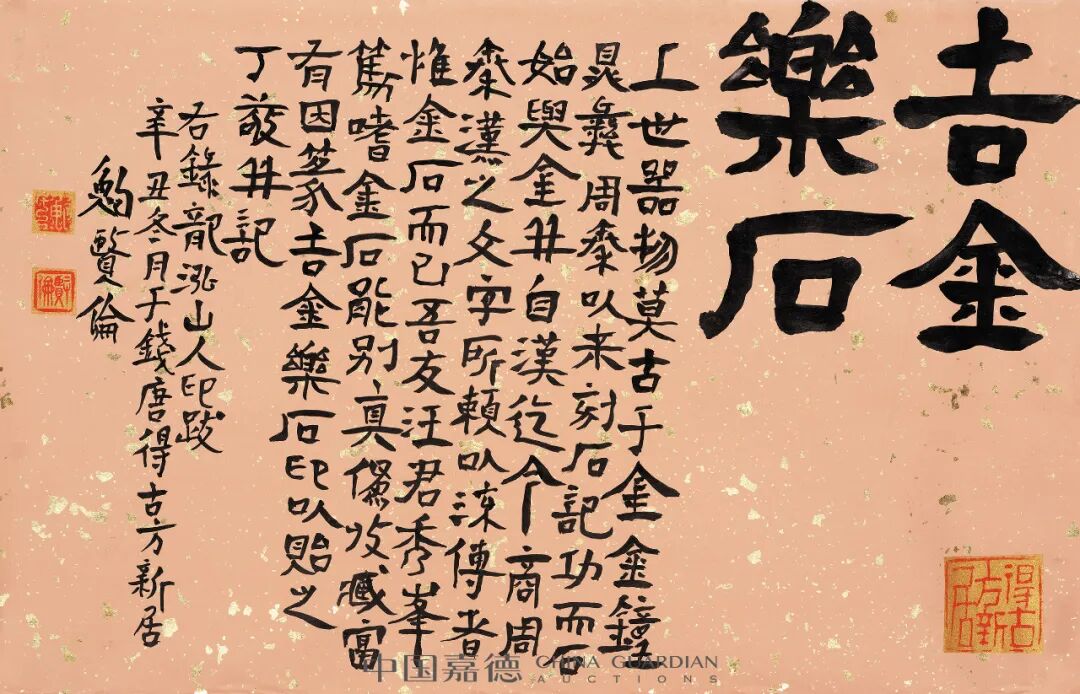 吉金
樂石
上世器物莫古于金金鐘
鼎彝周秦以来刻石記功而石
始與金并自漢迄今商周
秦漢之文字所賴以流傳者
惟金石而已吾友汪君秀峯
篤嗜金石能别真僞收藏富
有因篆吉金樂石印以貽之
丁敬并記
右錄龍泓山人印跋
辛丑冬月于錢唐得古方新居
鮑賢倫
中国嘉德 CHINA GUARDIAN
AUCTIONS